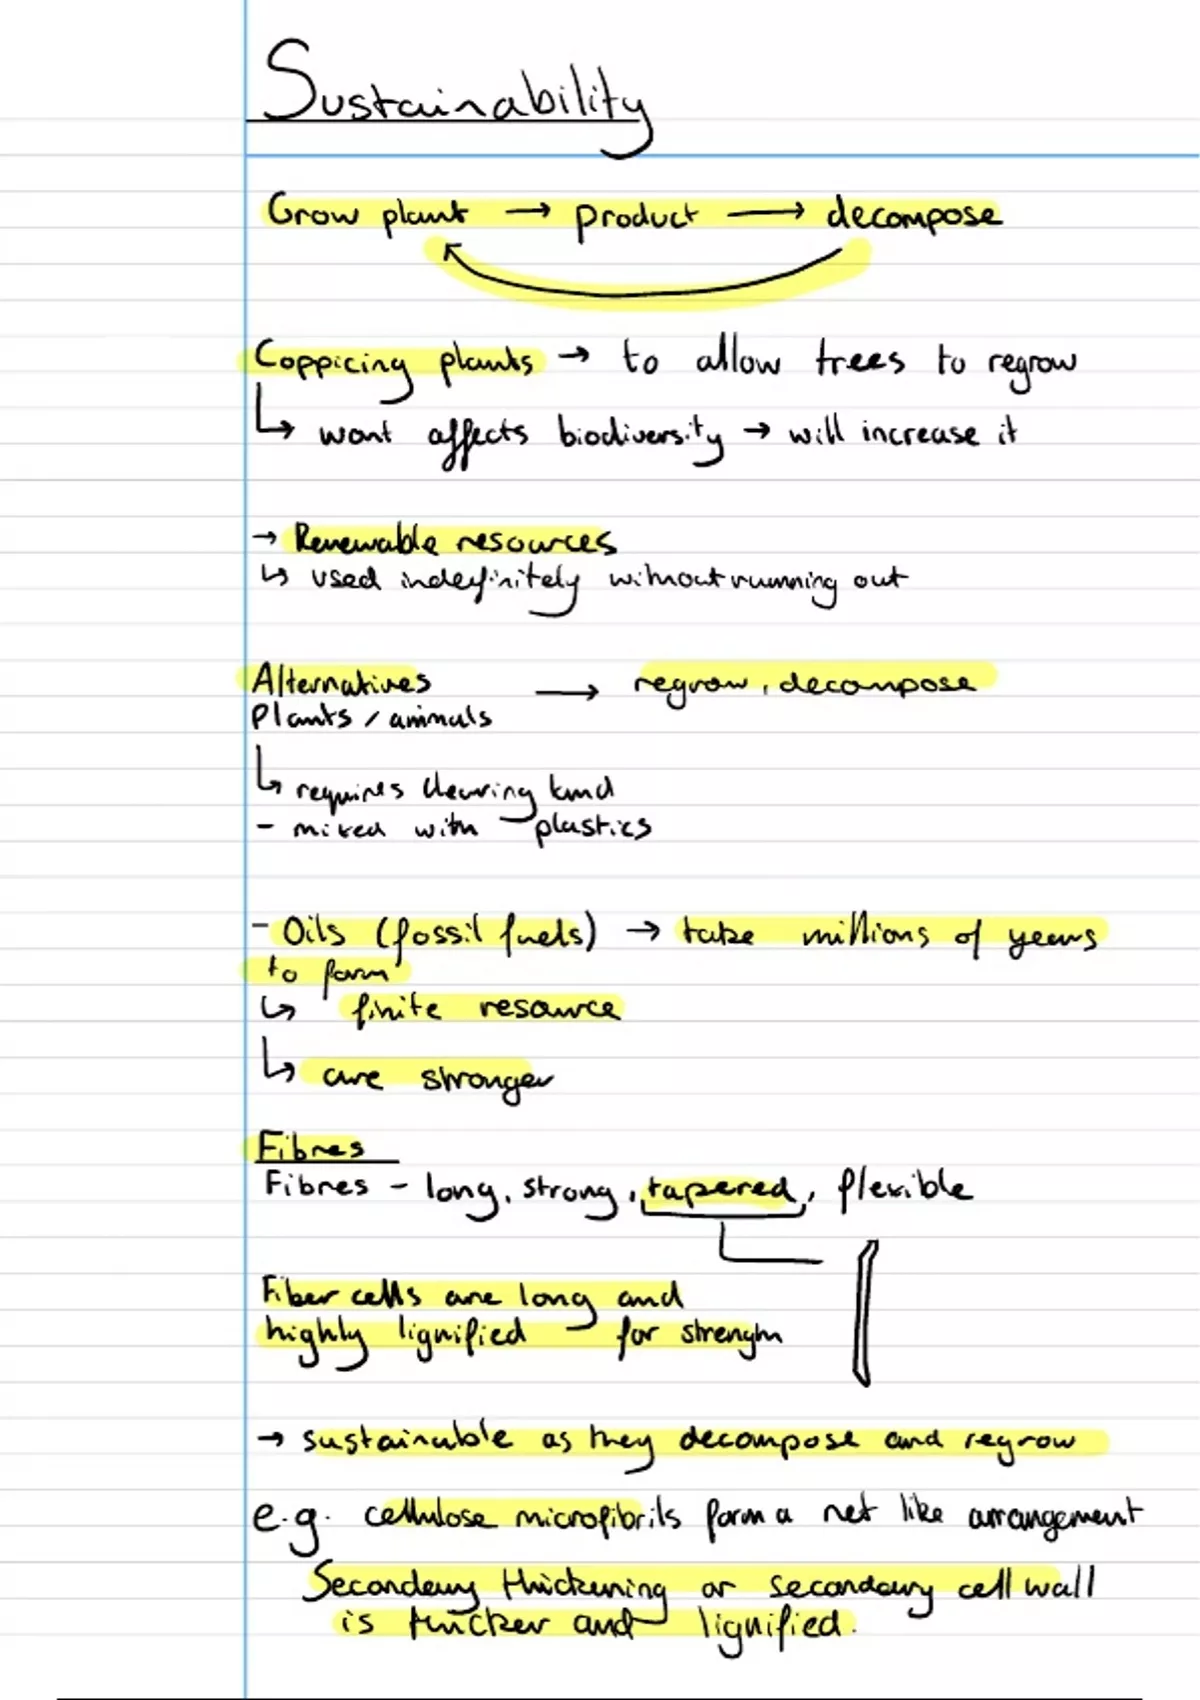 Sustainability
Grow plant → product → decompose
Coppicing plants → to allow trees to regrow
↳ wont affects biodiversity → will increase it
→ Renewable resources
↳ used indefinitely without running out
Alternatives → regrow, decompose
Plants / animals
↳ requires clearing land
- mixed with plastics
- Oils (fossil fuels) → take millions of years
to form
↳ finite resource
↳ are stronger
Fibres
Fibres - long, strong, tapered, flexible
Fiber cells are long and
highly lignified for strength
→ sustainable as they decompose and regrow
e.g. cellulose microfibrils form a net like arrangement
Secondary thickening or secondary cell wall
is thicker and lignified.